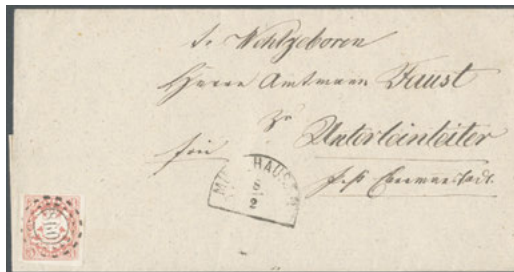 Sr. Wohlgeboren
Herrn Amtmann Faust
zu
Unterleinleiter
frei
p. St. Ebermannstadt.
HAUSEN
2